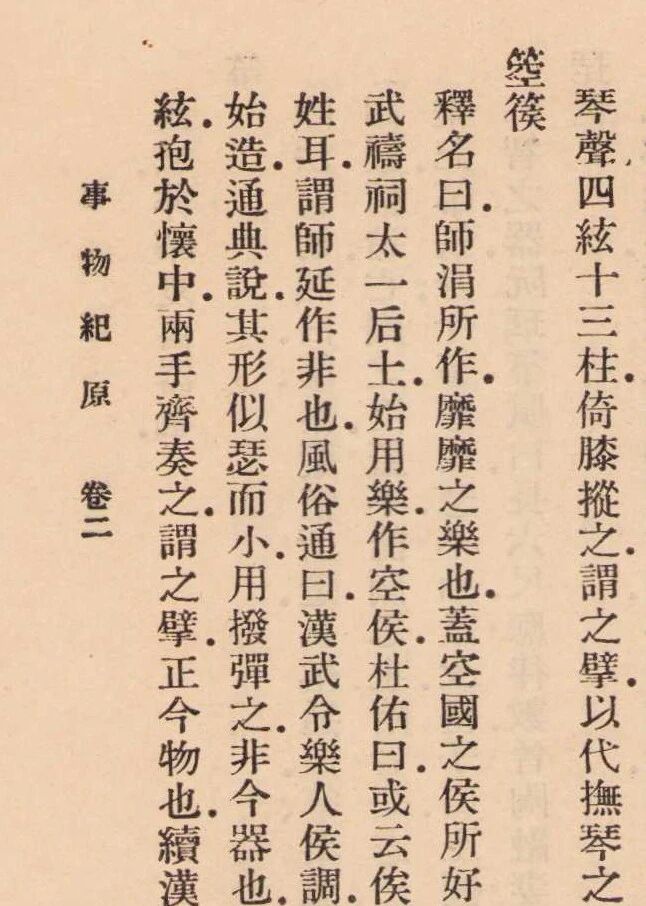 琴聲四絃十三柱.倚膝摐之.謂之擘.以代撫琴之
箜篌
釋名曰.師涓所作.靡靡之樂也.蓋空國之侯所好
武禱祠太一后土.始用樂.作空侯.杜佑曰.或云侯
姓耳.謂師延作非也.風俗通曰.漢武令樂人侯調.
始造.通典說.其形似瑟而小.用撥彈之.非今器也.
絃.孢於懷中.兩手齊奏之.謂之擘.正今物也.續漢
事物紀原 卷二